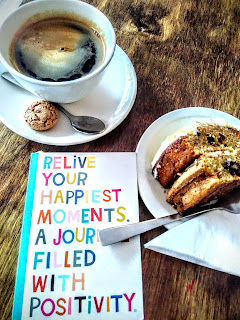 RELIVE
YOUR
HAPPIEST
MOMENTS.
A JOUR
FILLED
WITH
POSITIVITY.